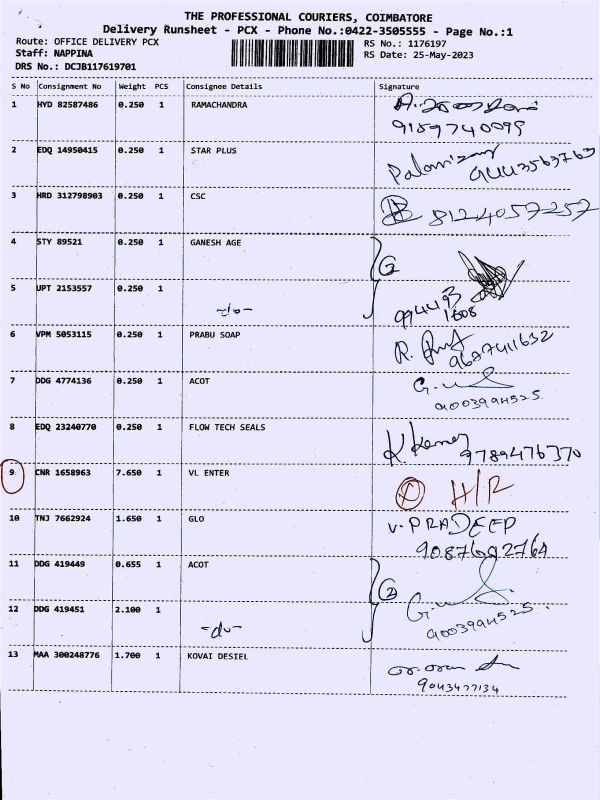 THE PROFESSIONAL COURIERS, COIMBATORE
Delivery Runsheet - PCX - Phone No.:0422-3505555 - Page No.:1
Route: OFFICE DELIVERY PCX
Staff: NAPPINA
DRS No.: DCJB117619701
RS No.: 1176197
RS Date: 25-May-2023
S No Consignment No Weight PCS Consignee Details Signature
1 HYD 82587486 0.250 1 RAMACHANDRA
9189740099
2 EDQ 14950415 0.250 1 STAR PLUS
9443563763
3 HRD 312798903 0.250 1 CSC
8124057257
4 STY 89521 0.250 1 GANESH AGE
2
5 UPT 2153557 0.250 1 -do-
994493
1608
6 VPM 5053115 0.250 1 PRABU SOAP
9687741632
7 DDG 4774136 0.250 1 ACOT
9003994525
8 EDQ 23240770 0.250 1 FLOW TECH SEALS
9789476370
9 CNR 1658963 7.650 1 VL ENTER
H/R
10 TNJ 7662924 1.650 1 GLO
V. PRADEEP
9087692764
11 DDG 419449 0.655 1 ACOT
2
12 DDG 419451 2.100 1 -do-
9003994525
13 MAA 300248776 1.700 1 KOVAI DESIEL
9043477134